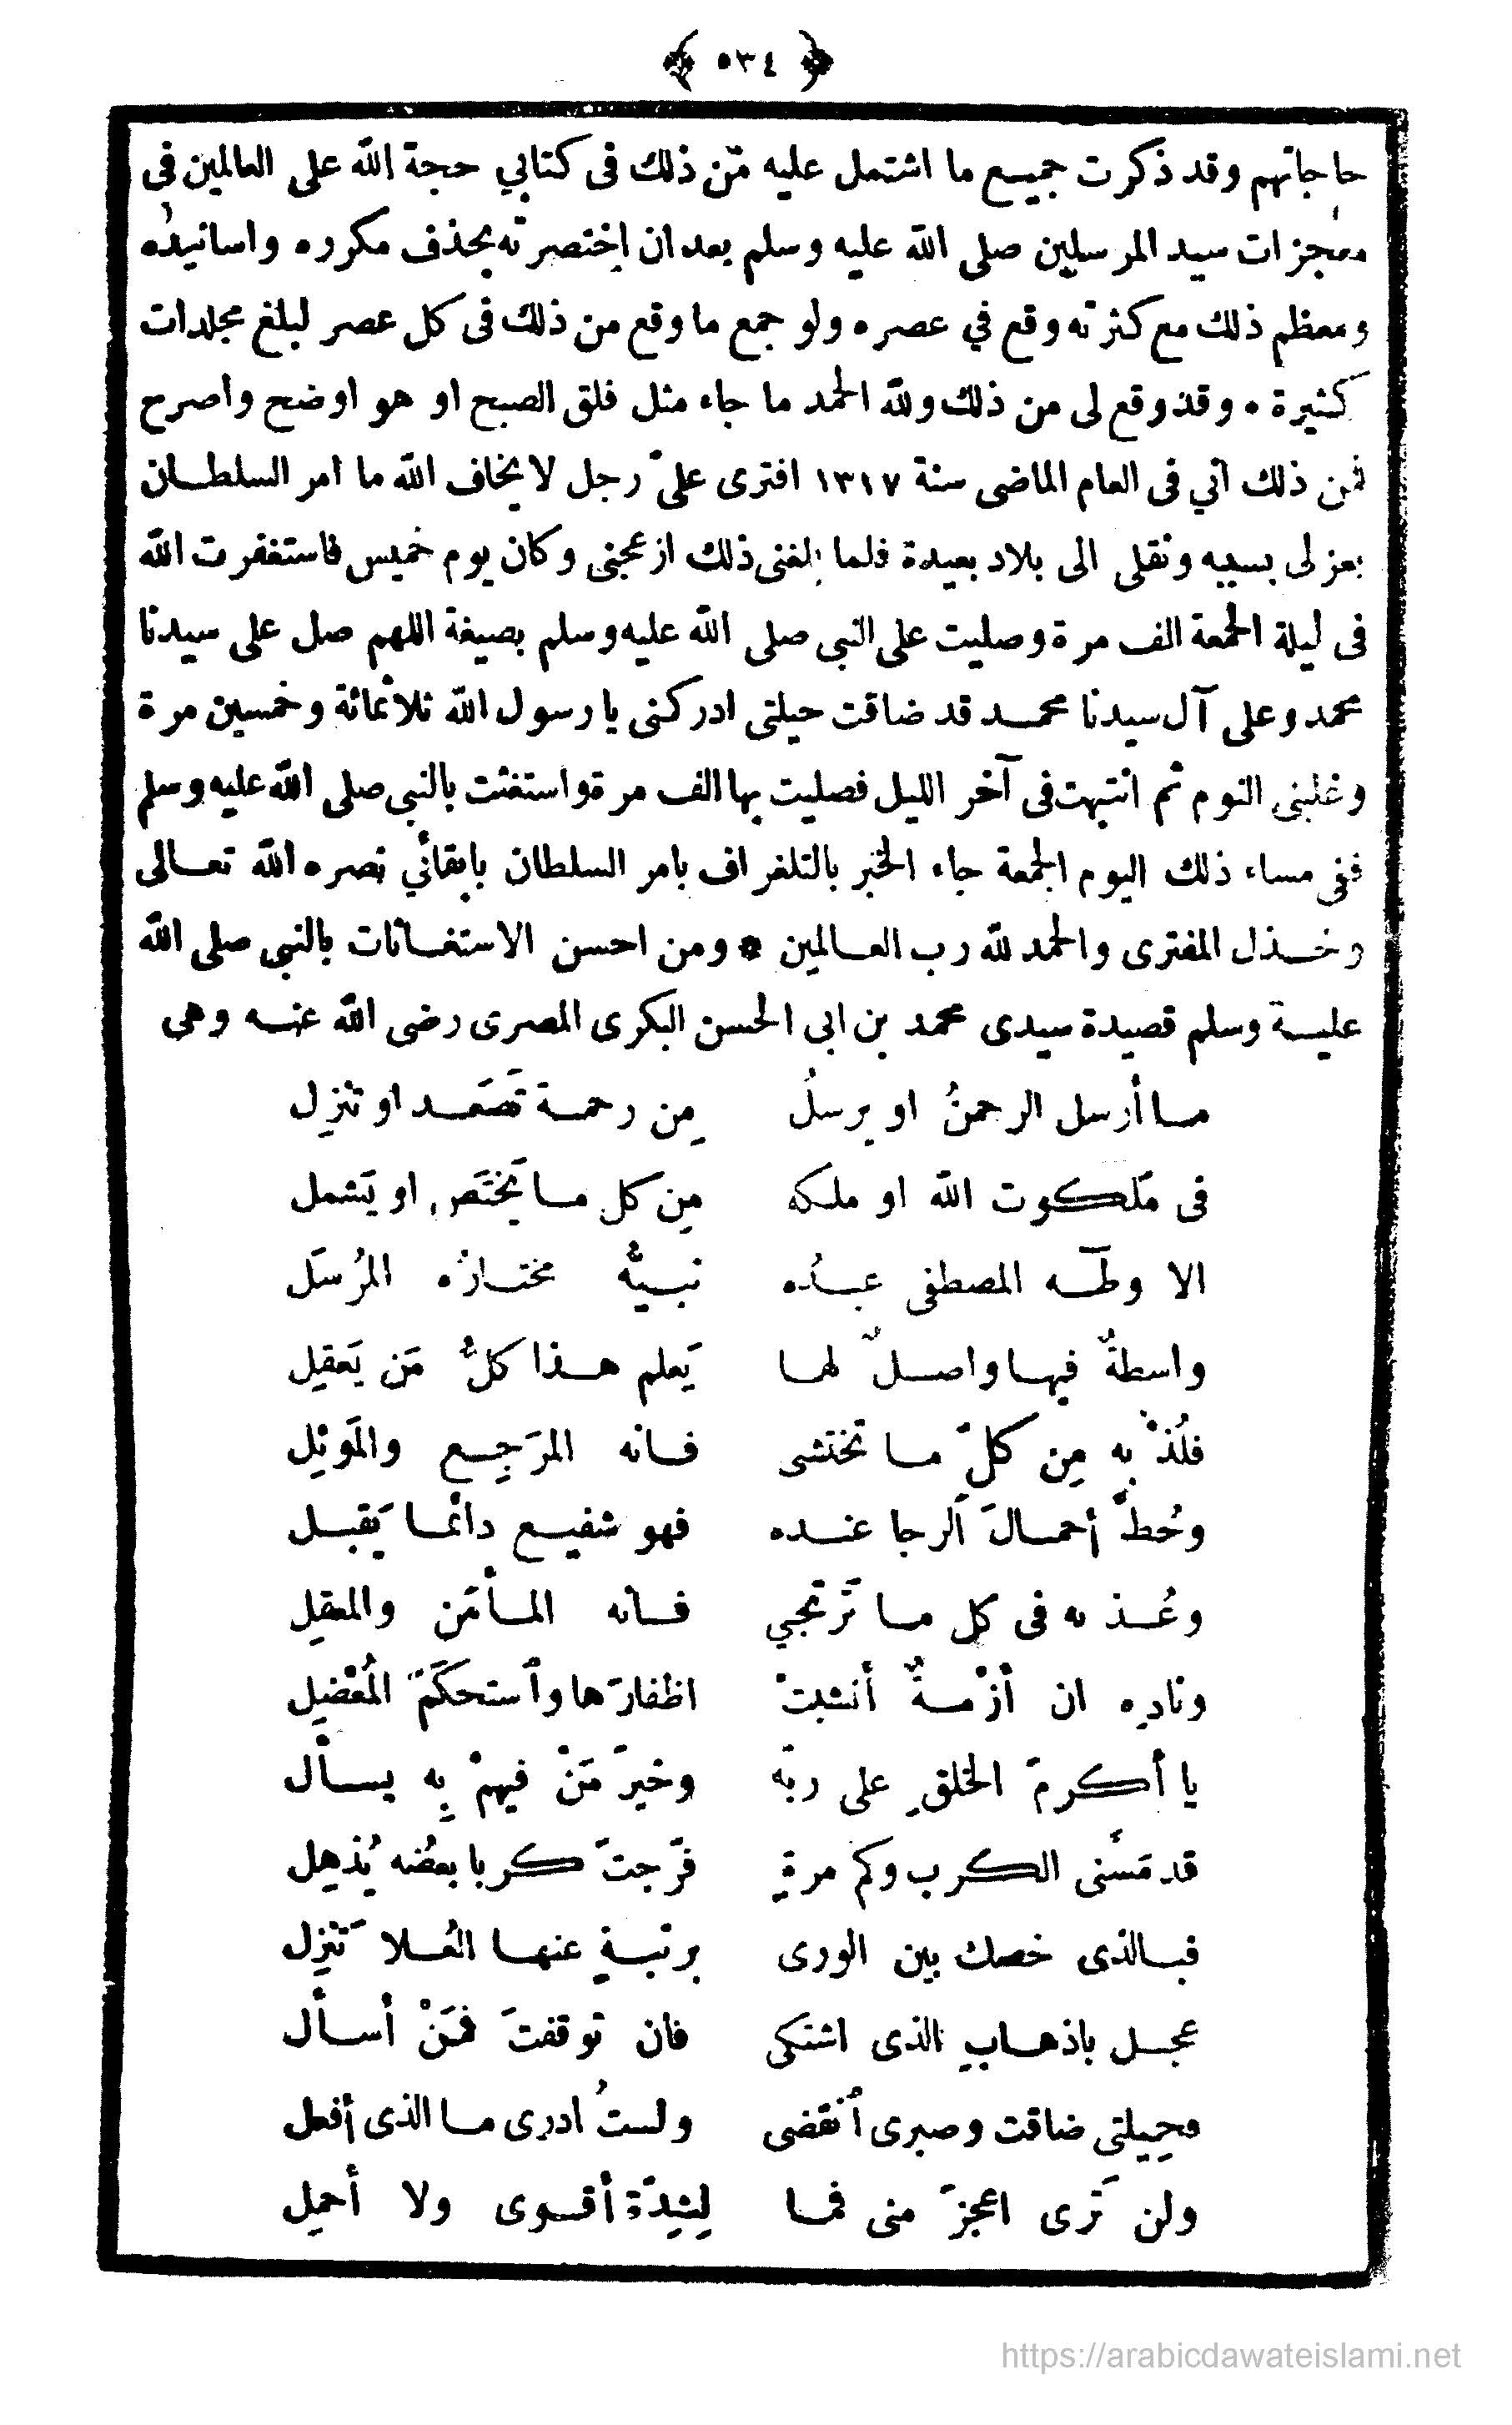 ﴿ ٥٣٤ ﴾
حاجاتهم وقد ذكرت جميع ما اشتمل عليه من ذلك فى كتابي حجة الله على العالمين في
معجزات سيد المرسلين صلى الله عليه وسلم بعد ان اختصرته بحذف مكرره واسانيده
ومعظم ذلك مع كثرته وقع في عصره ولو جمع ما وقع من ذلك فى كل عصر لبلغ مجلدات
كثيرة • وقد وقع لى من ذلك ولله الحمد ما جاء مثل فلق الصبح او هو اوضح واصرح
فمن ذلك اني فى العام الماضى سنة ١٣١٧ افترى علىّ رجل لا يخاف الله ما امر السلطـان
بعزلى بسببه ونقلى الى بلاد بعيدة فلما بلغنى ذلك ازعجنى وكان يوم خميس فاستغفرت الله
فى ليلة الجمعة الف مرة وصليت على النبى صلى الله عليه وسلم بصيغة اللهم صل على سيدنا
محمد وعلى آل سيدنا محمـد قد ضاقت حيلتى ادركنى يا رسول الله ثلاثمائة وخمسين مرة
وغلبنى النوم ثم انتبهت فى آخر الليل فصليت بها الف مرة واستغثت بالنبى صلى الله عليه وسلم
ففى مساء ذلك اليوم الجمعة جاء الخبر بالتلغراف بامر السلطان بابقائي نصره الله تعـالى
وخـذل المفترى والحمد لله رب العـالمين * ومن احسن الاستغـاثات بالنبى صلى الله
عليـه وسلم قصيدة سيدى محمد بن ابى الحسن البكرى المصرى رضى الله عنـه وهى
مـا أرسل الرحمنُ او يرسلُ مِن رحمـة تَصعَـد او تنزِل
فى مَلكوت الله او ملكه مِن كل مـا يَختَص او يَشمل
الا وطٓـه المصطفى عبـدُه نبـيهُّ مختـارُه المُرسَل
واسطةٌ فيهـا واصـلٌ لهـا يَعلم هـذا كلُّ مَن يَعقِل
فلُذْ به مِن كلّ مـا تختشى فـانه المرَجِـع والمَوئِل
وحُطَّ أحمـالَ ٱلرجا عنـده فهو شفيـع دائمـا يَقبـل
وعُـذ به فى كل مـا تَرتجي فـانه المـأمَن والمعقِل
ونادِه ان أزْمـةٌ أنشبتْ اظفارَها وٱستحكَمَ المُعْضِل
يا أكرمَ الخلقِ على ربّه وخيرَ مَنْ فيهمْ بِه يسـأل
قد مَسَّنى الكرب وكم مرةٍ فرّجتَ كربا بعضُه يُذهِل
فبـالذى خصك بين الورى برتبـةٍ عنهـا العُـلا تَنزِل
عجـل باذهـابِ الذى اشتكى فان توقفتَ فمَنْ أسـأل
فحِيلتى ضاقت وصبرى ٱنقضى ولستُ ادرى مـا الذى أفعل
ولن تَرى اعجزَ منى فما لِشِدّة أقـوى ولا أحمِل
https://arabicdawateislami.net